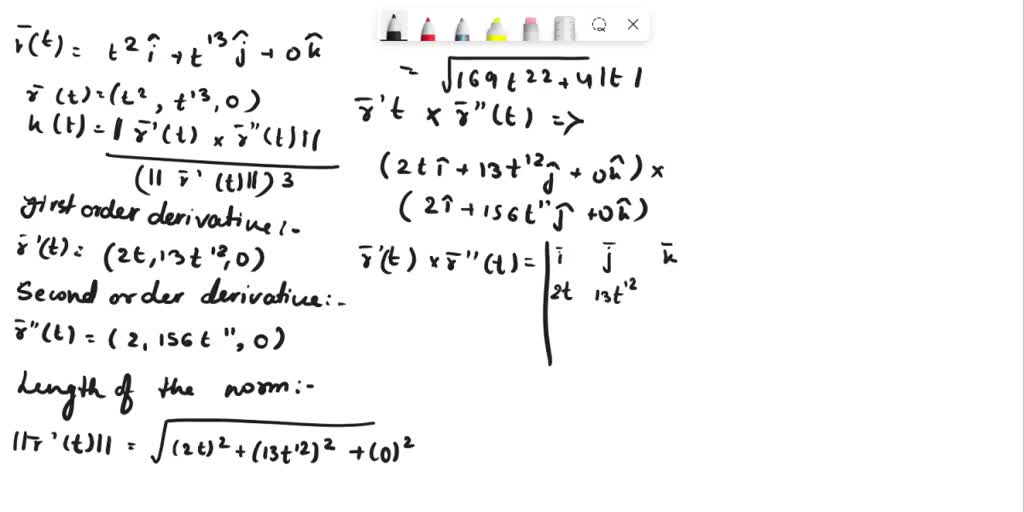 r̄(t) = t² î + t¹³ ĵ + 0 k̂
r̄(t) = (t², t¹³, 0)
k(t) = ‖ r̄'(t) × r̄''(t) ‖
(‖ r̄'(t) ‖)³
first order derivative:-
r̄'(t) = (2t, 13t¹², 0)
Second order derivative:-
r̄''(t) = (2, 156t¹¹, 0)
Length of the norm:-
‖r̄'(t)‖ = √(2t)² + (13t¹²)² + (0)²
= √169t²²+4 |t|
r̄'t × r̄''(t) =>
(2t î + 13t¹² ĵ + 0k̂) ×
(2î + 156t¹¹ ĵ + 0k̂)
r̄'(t) × r̄''(t) = | ī j̄ k̄
2t 13t¹²